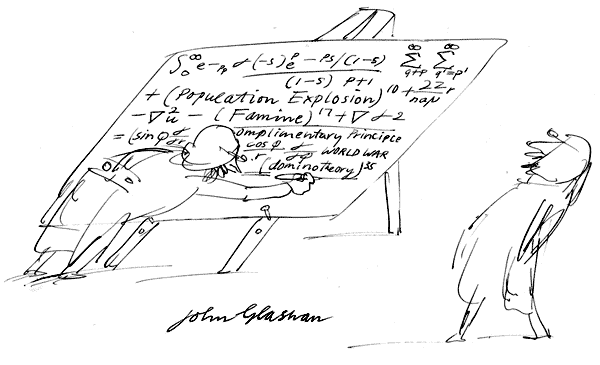 ∫₀^∞ e-pp α(-s)e^p - ps/(1-s) ∞Σq+p ∞Σq'=p'
(1-s) p+1
+ (Population Explosion)^10 + 2Z/naμ r
-∇²u - (Famine)^17 + ∇ α 2
= (sin φ omplimentary Principle
cos φ WORLD WAR
(dominotheory)^35
John Glashan